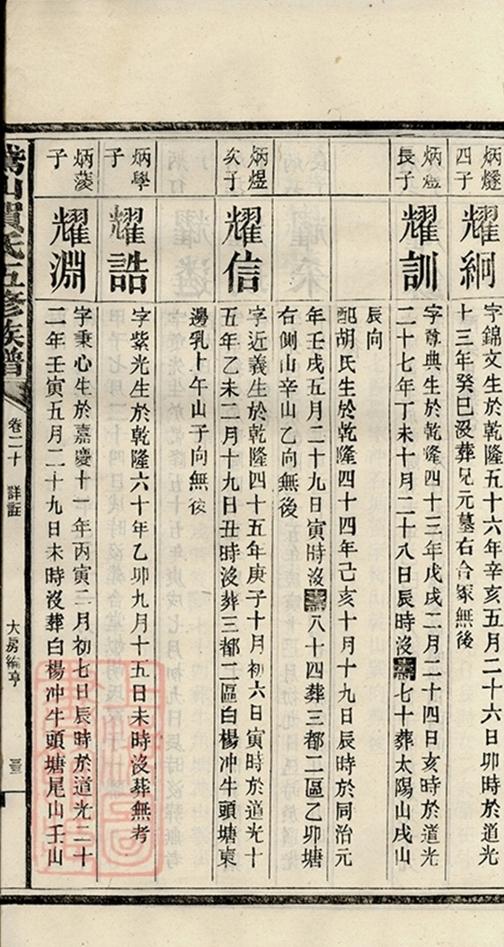 炳燧
四子
耀綱
字錦文生於乾隆五十六年辛亥五月二十六日卯時於道光
十三年癸巳沒葬兄元墓右合冢無後
炳煃
長子
耀訓
字尊典生於乾隆四十三年戊戌二月二十四日亥時於道光
二十七年丁未十月二十八日辰時沒壽七十葬太陽山戌山
辰向
配胡氏生於乾隆四十四年己亥十月十九日辰時於同治元
年壬戌五月二十九日寅時沒壽八十四葬三都二區乙卯塘
右側山辛山乙向無後
炳煜
次子
耀信
字近義生於乾隆四十五年庚子十月初六日寅時於道光十
五年乙未二月十九日丑時沒葬三都二區白楊冲牛頭塘東
邊乳上午山子向無後
炳學
子
耀誥
字紫光生於乾隆六十年乙卯九月十五日未時沒葬無考
炳蔆
子
耀淵
字秉心生於嘉慶十一年丙寅二月初七日辰時於道光二十
二年壬寅五月二十九日未時沒葬白楊冲牛頭塘尾山壬山
山賀氏五修族譜
卷二十
詳註
大房編亨